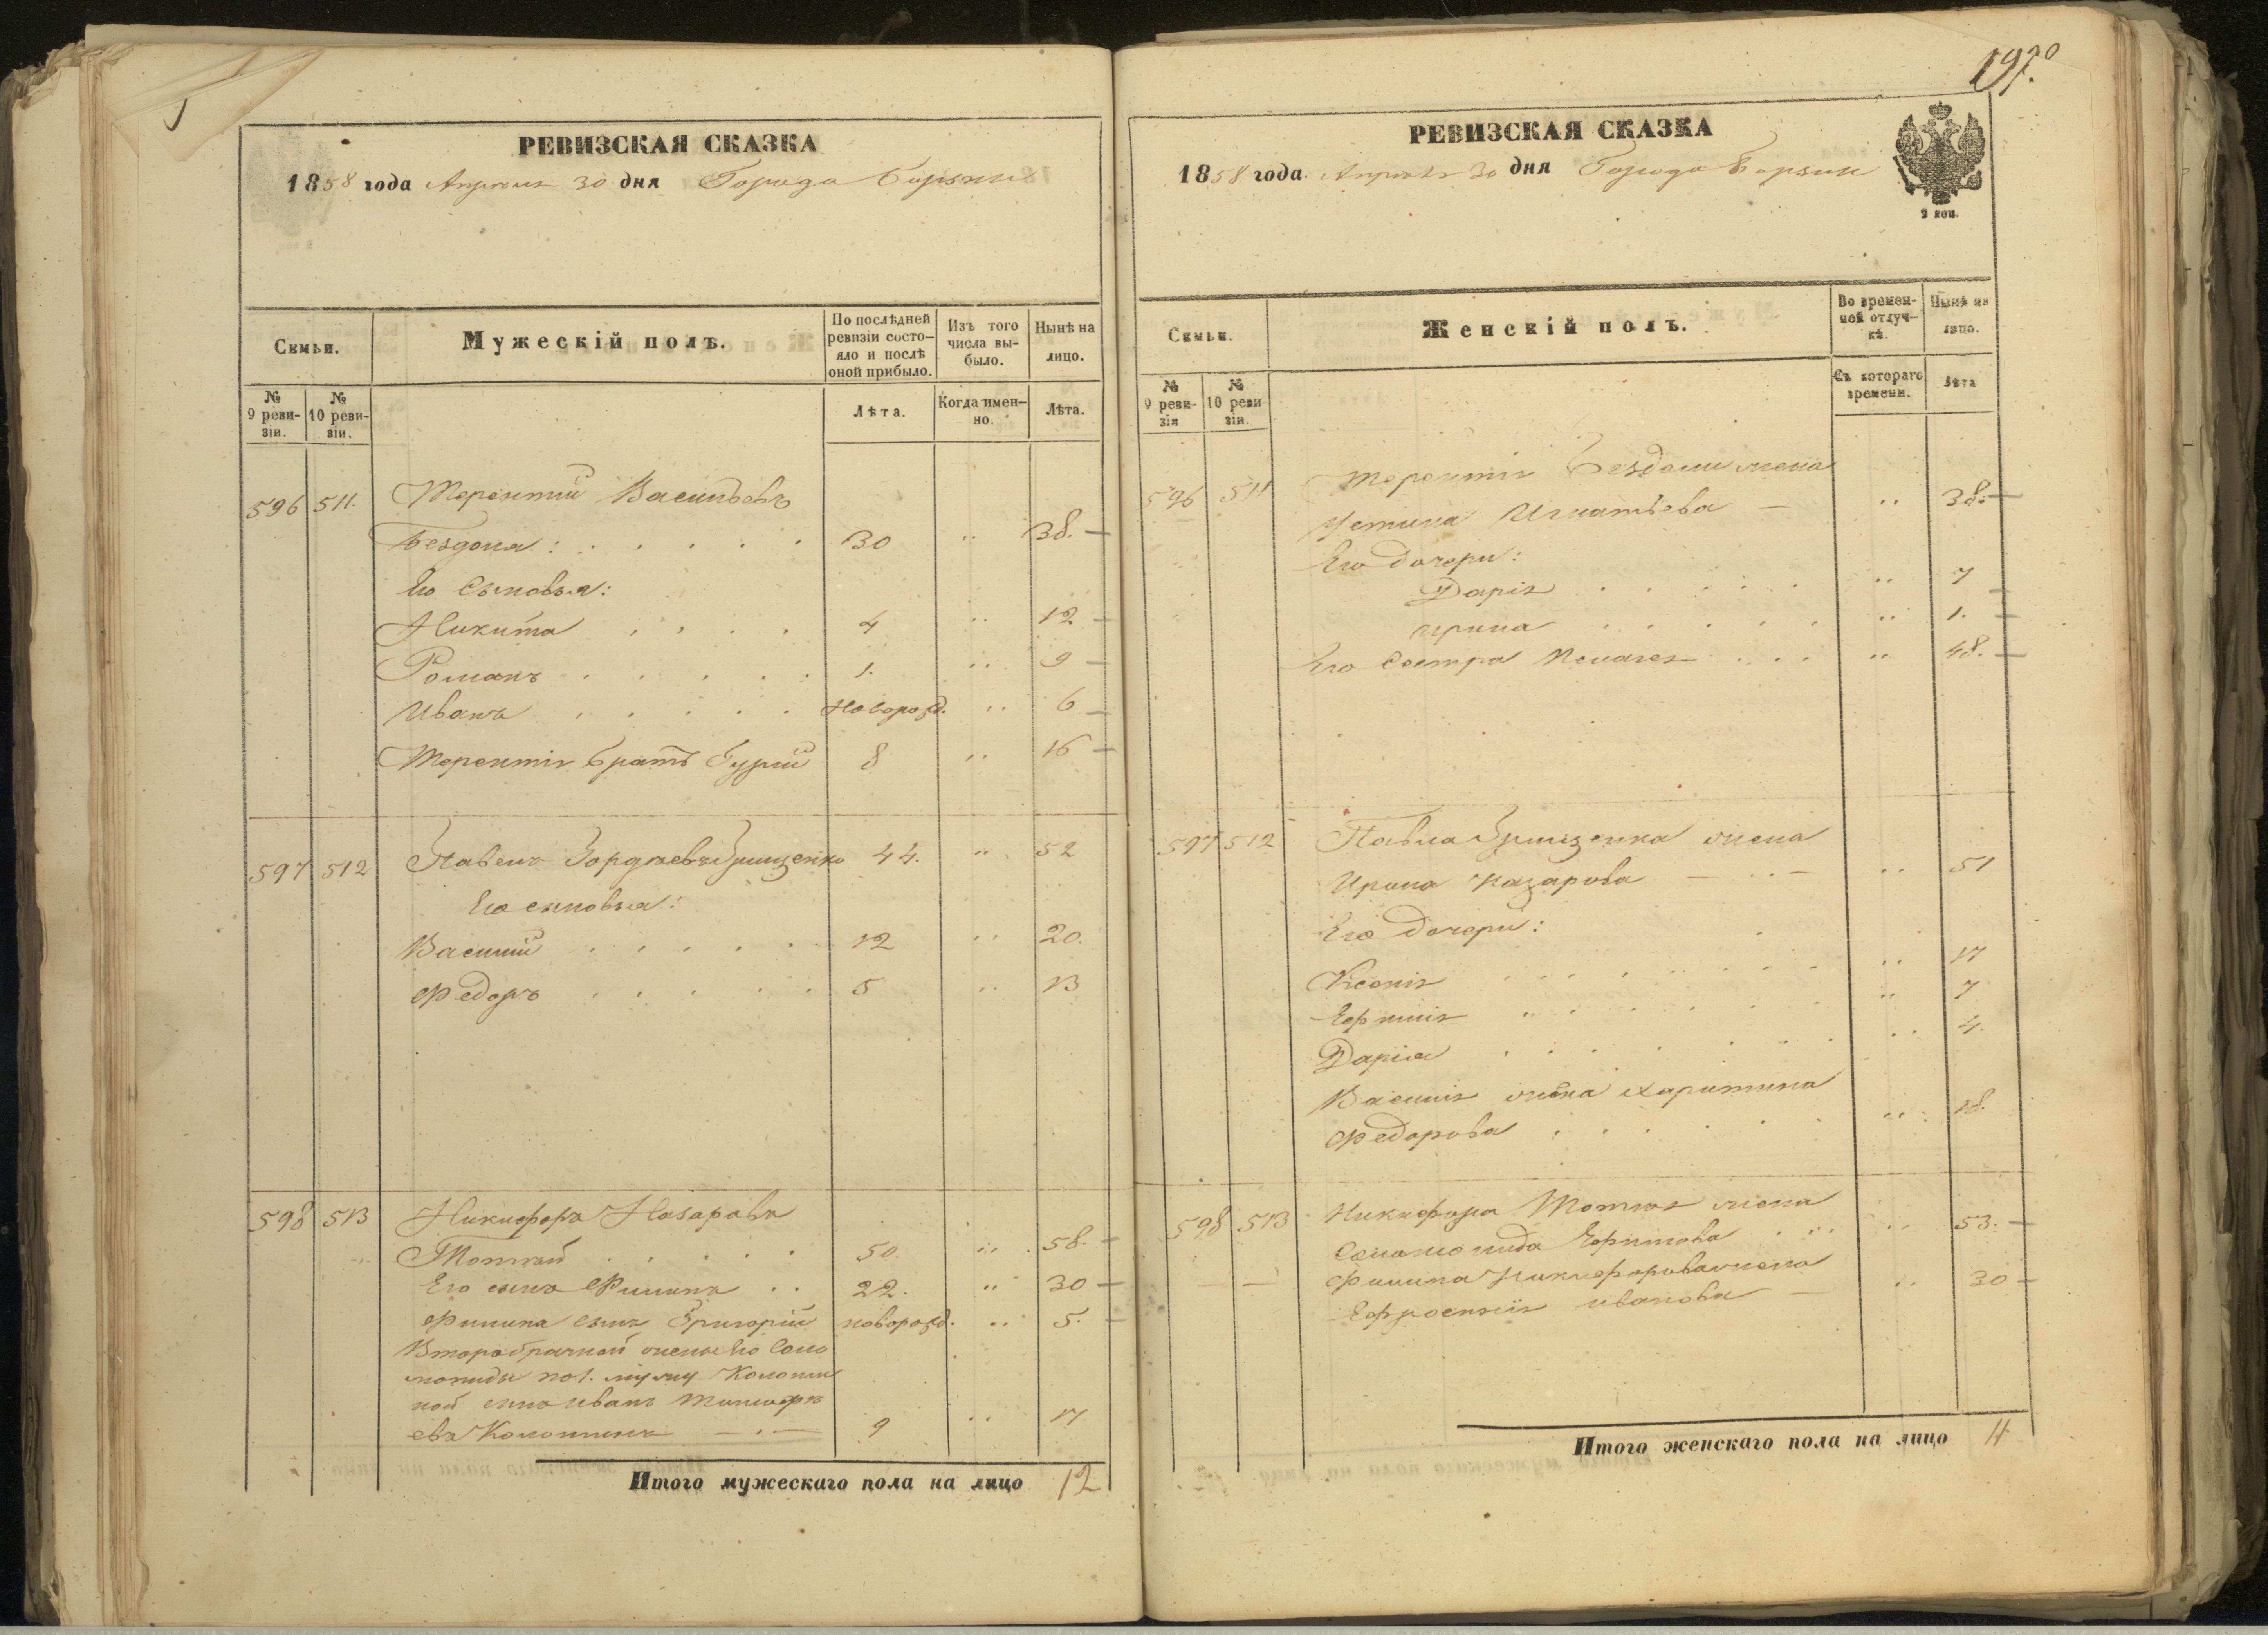 РЕВИЗСКАЯ СКАЗКА
1858 года Апреля 30 дня Города Борзны
Семьи.
Мужескій полъ.
По послѣдней ревизіи состо-яло и послѣ оной прибыло.
Изъ того числа вы-было.
Нынѣ на лицо.
№ 9 реви-зіи.
№ 10 реви-зіи.
Лѣта.
Когда имен-но.
Лѣта.
596 511. Терентій Васильевъ
Бездона: 30 " 38. —
Его Сыновья:
Никита 4 " 12 —
Романъ 1. " 9 —
Иванъ Новорожд. " 6 —
Терентія братъ Гурій 8 " 16 —
597 512 Павелъ Гордѣевъ Грищенко 44. " 52
Его сыновья:
Василій 12 " 20.
Федоръ 5 " 13
598 513 Никифоръ Назаровъ
50. " 58. —
Его сынъ Филипъ 22. " 30 —
Филипа сынъ Григорій новорожд. " 5. —
Второбрачной жены Его Соло
мониды по 1. мужу
ной сынъ Иванъ
евъ 9 " 17
Итого мужескаго пола на лицо 12
197.
РЕВИЗСКАЯ СКАЗКА
1858 года Апреля 30 дня Города Борзны
2 коп.
Семьи.
Женскій полъ.
Во времен-ной отлуч-кѣ.
Нынѣ на лицо.
№ 9 реви-зіи
№ 10 реви-зіи.
Съ котораго времени.
Лѣта
596 511 Терентія Бездоны жена
Устина Игнатьева — " 38. —
Его дочери:
Дарія " 7 —
Ирина " 1. —
Его Сестра " 48. —
597 512 Павла Грищенка жена
Ирина Назарова — " 51
Его дочери:
Ксенія " 17
" 7
Дарія " 4.
Василія жена Харитина
Федорова " 18.
598 513 Никифора жена
Соломонида Ефимова " 53. —
— Филипа Никифорова жена
Ефросинія Иванова — " 30 —
Итого женскаго пола на лицо 11